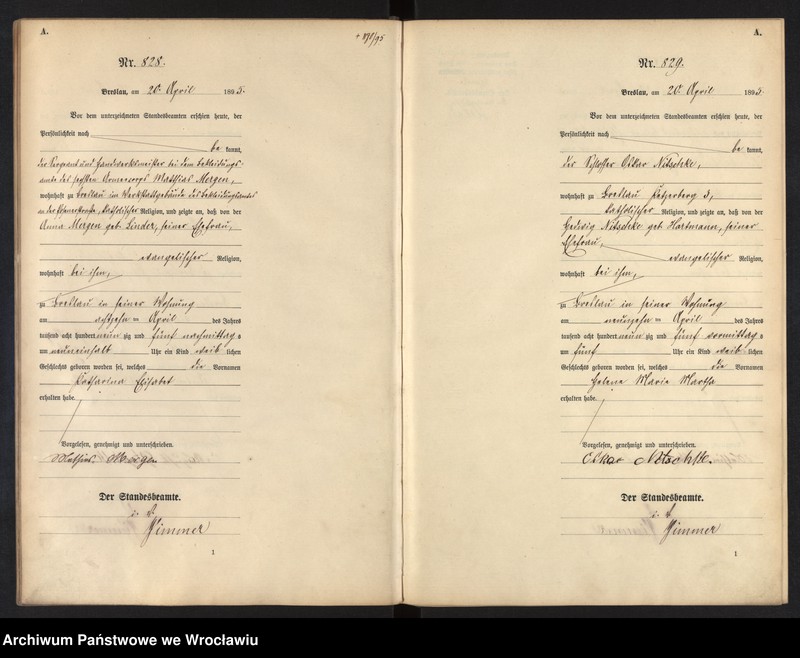 A.
Nr. 828.
Breslau, am 20. April 1895.
Vor dem unterzeichneten Standesbeamten erschien heute, der
Persönlichkeit nach
be kannt,
der Sergeant und Handwerksmeister bei dem Bekleidungs-
amte des sechsten Armeecorps Matthias Mergen,
wohnhaft zu Breslau im Werkstattgebäude des Bekleidungsamtes
an der katholischer Religion, und zeigte an, daß von der
Anna Mergen geb. Linder, seiner Ehefrau,
evangelischer Religion,
wohnhaft bei ihm,
zu Breslau in seiner Wohnung
am achtzehn ten April des Jahres
tausend acht hundert neun zig und fünf nachmittag s
um neuneinhalb Uhr ein Kind weib lichen
Geschlechts geboren worden sei, welches die Vornamen
Katharina Elisabet
erhalten habe.
Vorgelesen, genehmigt und unterschrieben.
Mathias Mergen
Der Standesbeamte.
i. V.
Zimmer
1
A.
Nr. 829.
Breslau, am 20. April 1895.
Vor dem unterzeichneten Standesbeamten erschien heute, der
Persönlichkeit nach
be kannt,
der Schlosser Oskar Nitschke,
wohnhaft zu Breslau 3,
katholischer Religion, und zeigte an, daß von der
Hedwig Nitschke geb. Hartmann, seiner
Ehefrau,
evangelischer Religion,
wohnhaft bei ihm,
zu Breslau in seiner Wohnung
am neunzehn ten April des Jahres
tausend acht hundert neun zig und fünf vormittag s
um fünf Uhr ein Kind weib lichen
Geschlechts geboren worden sei, welches die Vornamen
Helene Maria Martha
erhalten habe.
Vorgelesen, genehmigt und unterschrieben.
Oskar Nitschke.
Der Standesbeamte.
i. V.
Zimmer
1
Archiwum Państwowe we Wrocławiu